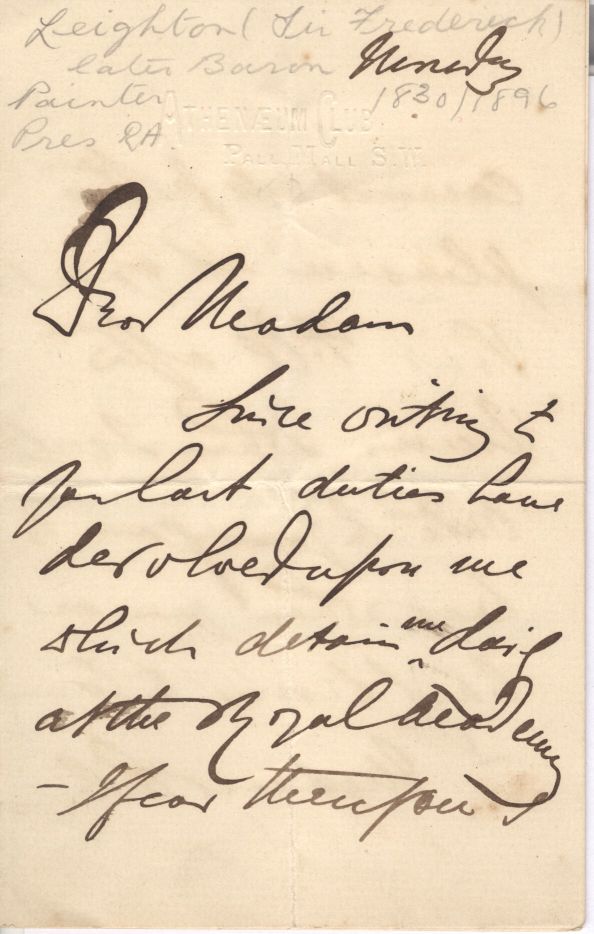 Leighton (Sir Frederick)
later Baron
Painter 1830/1896
Pres RA
ATHENÆUM CLUB
PALL MALL S.W.
Dear Madam
Since writing to
you last duties have
devolved upon me
which detain me daily
at the Royal Academy
- I fear therefore